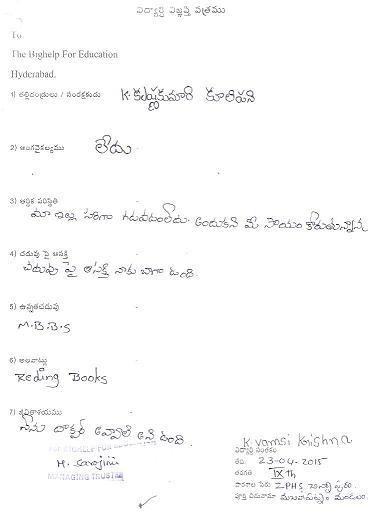 విద్యార్థి విజ్ఞప్తి పత్రము
To
The Bighelp For Education
Hyderabad.
1) తల్లిదండ్రులు / సంరక్షకుడు K. కృష్ణకుమారి కూలిపని
2) అంగవైకల్యము లేదు
3) ఆర్థిక పరిస్థితి
మా ఇల్లు సరిగా గడువడంలేదు. అందుకని మీ సాయం కోరుతున్నాను
4) చదువు పై ఆసక్తి
చదువు పై ఆసక్తి నాకు బాగా ఉంది.
5) ఉన్నతచదువు
M.B.B.S
6) అలవాట్లు
Reding Books
7) జీవితాశయము
నేను డాక్టర్ అవ్వాలి అని ఉంది.
For BIGHELP FOR
M. Sarojini
MANAGING TRUSTEE
K. vamsi krishna
విద్యార్థి సంతకం
తేది: 23-04-2015
తరగతి IX th
పాఠశాల పేరు ZPHS
పూర్తి చిరునామా మండలం.